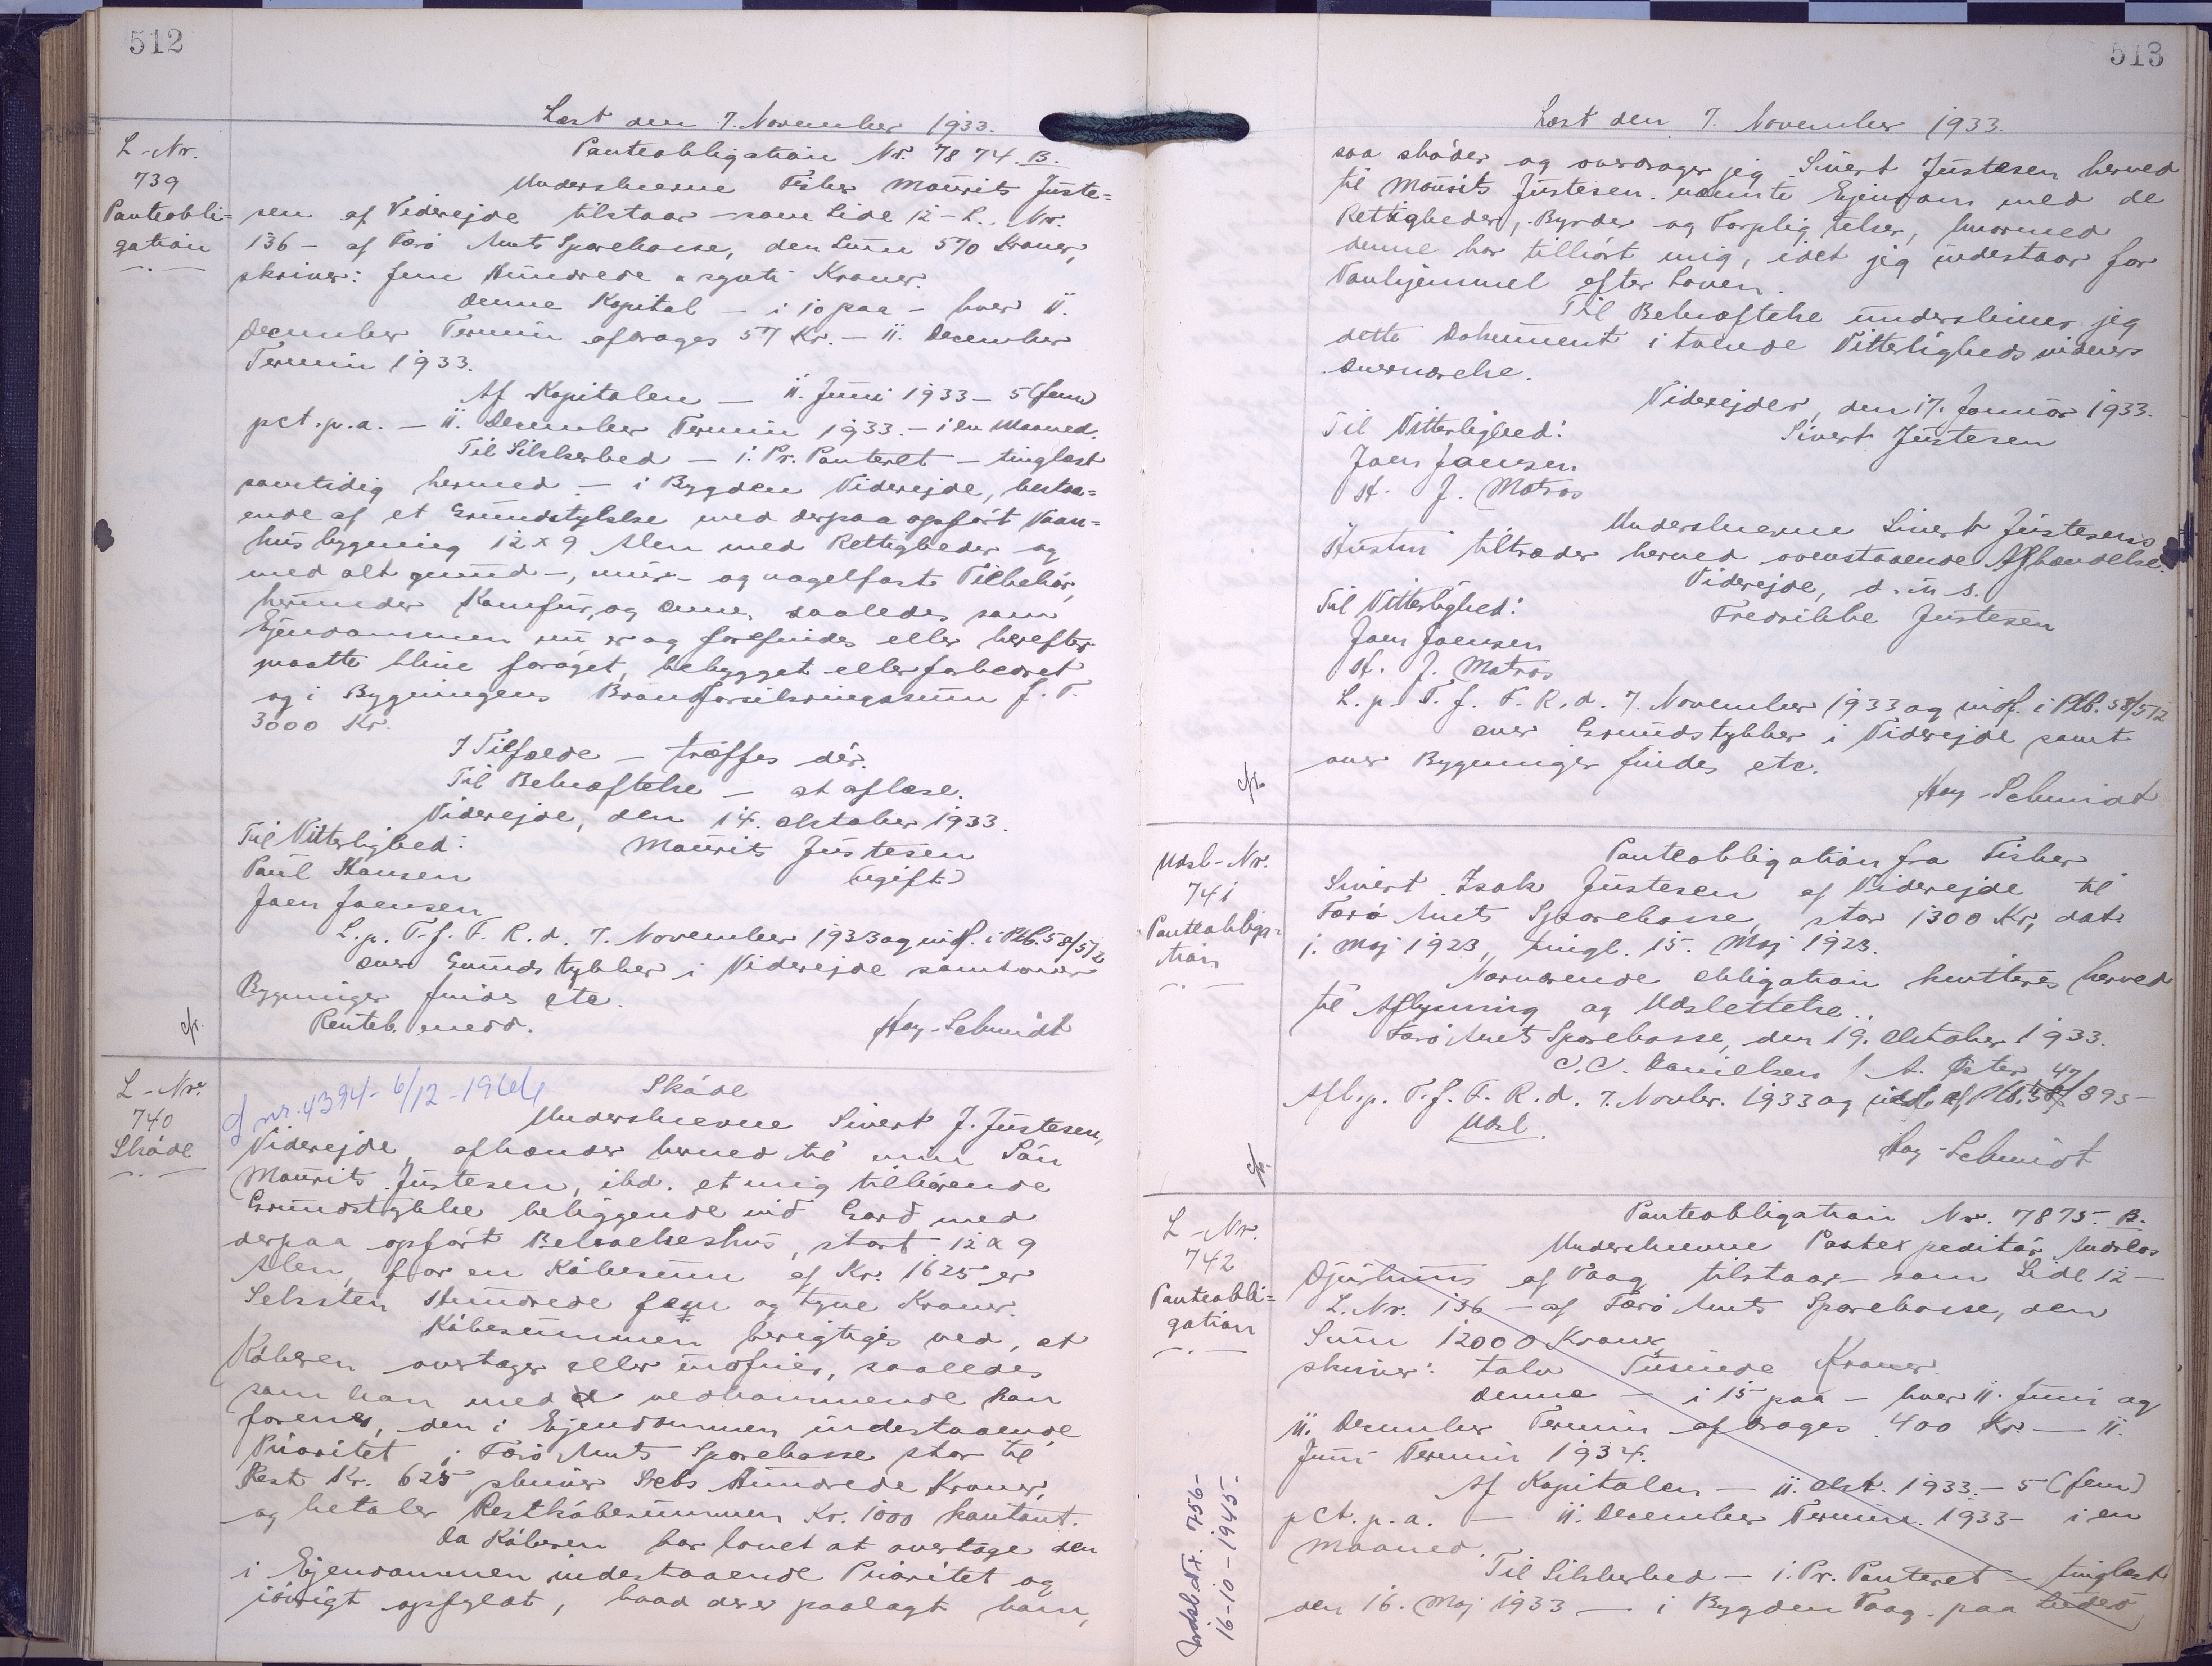 512
Læst den 7. November 1933.
L-Nr.
739
Panteobli=
gation
Panteobligation Nr. 7874. B.
Underskrevne Fisker Maurits Juste=
sen af Viderejde tilstaar - som Side 12 - L. Nr.
136 - af Færø Amts Sparekasse, den Sum 570 Kroner,
skriver: fem Hundrede & syvti Kroner.
Denne Kapital - i 10 paa - hver 11.
December Termin afdrages 57 Kr. - 11. December
Termin 1933.
Af Kapitalen - 11. Juni 1933 - 5 (fem)
pct. p. a. - 11. December Termin 1933. - i en Maaned.
Til Sikkerhed - 1. Pr. Panteret - tinglæst
samtidig hermed - i Bygden Viderejde, bestaa=
ende af et Grundstykke med derpaa opført Vaan=
husbygning 12 x 9 Alen med Rettigheder og
med alt grund-, mur- og nagelfast Tilbehør,
herunder Komfur, og Ovne, saaledes som
Ejendommen nu er og forefindes eller herefter
maatte blive forøget, bebygget eller forbedret
og i Bygningens Brandforsikringssum f. T.
3000 Kr.
I Tilfælde - træffes dér.
Til Bekræftelse - at aflæse.
Viderejde, den 14. Oktober 1933.
Til Vitterlighed: Maurits Justesen
Paul Hansen (ugift)
Joen Joensen
L. p. T. f. F. R. d. 7. November 1933 og indf. i Ptb. 58/572
over Grundstykker i Viderejde samt over
Bygninger findes etc.
Renteb. medd. Hoy-Schmidt
cfr.
L-Nr.
740
Skøde
Skøde
Underskrevne Sivert J. Justesen,
Viderejde, afhænder herved til min Søn
Maurits Justesen, ibd. et mig tilhørende
Grundstykke beliggende við Garð med
derpaa opført Beboelseshus, stort 12 x 9
Alen, for en Købesum af Kr. 1625 er
Seksten Hundrede fem og tyve Kroner.
Købesummen berigtiges ved, at
Køberen overtager eller indfrier, saaledes
som han med vedkommende kan
forenes, den i Ejendommen indestaaende
Prioritet i Færø Amts Sparekasse stor til
Rest Kr. 625 skriver Seks Hundrede Kroner,
og betaler Restkøbesummen Kr. 1000 kontant.
Da Køberen har lovet at overtage den
i Ejendommen indestaaende Prioritet og
iøvrigt opfyldt, hvad der er paalagt ham,
513
Læst den 7. November 1933.
saa skøder og overdrager jeg Sivert Justesen herved
til Maurits Justesen nævnte Ejendom med de
Rettigheder, Byrder og Forpligtelser, hvormed
denne har tilhørt mig, idet jeg indestaar for
Vanhjemmel efter Loven.
Til Bekræftelse underskriver jeg
dette Dokument i tvende Vitterlighedsvidners
Overværelse.
Viderejde, den 17. Januar 1933.
Til Vitterlighed: Sivert Justesen
Joen Joensen
H. J. Matras
Underskrevne Sivert Justesens
Hustru tiltræder herved ovenstaaende Afhændelse.
Viderejde, d. u. s.
Til Vitterlighed: Fredrikke Justesen
Joen Joensen
H. J. Matras
L. p. T. f. F. R. d. 7. November 1933 og indf. i Ptb. 58/572
over Grundstykker i Viderejde samt
over Bygninger findes etc.
cfr. Hoy-Schmidt
Udsl-Nr.
741
Panteobliga=
tion
Panteobligation fra Fisker
Sivert Isak Justesen af Viderejde til
Færø Amts Sparekasse, stor 1300 Kr, dat.
1. Maj 1923, tingl. 15. Maj 1923.
Nærværende Obligation kvitteres herved
til Aflysning og Udslettelse.
Færø Amts Sparekasse, den 19. Oktober 1933.
C. C. Danielsen / A. Øster
Afl. p. T. f. F. R. d. 7. Novbr. 1933 og udsl. af Ptb. 47/395 -
Udsl.
Hoy-Schmidt
cfr.
L-Nr.
742
Panteobli=
gation
Panteobligation Nr. 7875. B.
Underskrevne Postexpeditør Andreas
Djurhuus af Vaag tilstaar - som Side 12 -
L. Nr. 136 - af Færø Amts Sparekasse, den
Sum 12000 Kroner,
skriver: tolv Tusinde Kroner.
Denne - i 15 paa - hver 11. Juni og
11. December Termin afdrages 400 Kr - 11.
Juni Termin 1934.
Af Kapitalen - 11. Okt. 1933. - 5 (fem)
pct. p. a. - 11. December Termin 1933 - i en
Maaned.
Til Sikkerhed - 1. Pr. Panteret - tinglæst
den 16. Maj 1933 - i Bygden Vaag paa Suderø
Udsl. Nr. 756 -
16-10-1945.